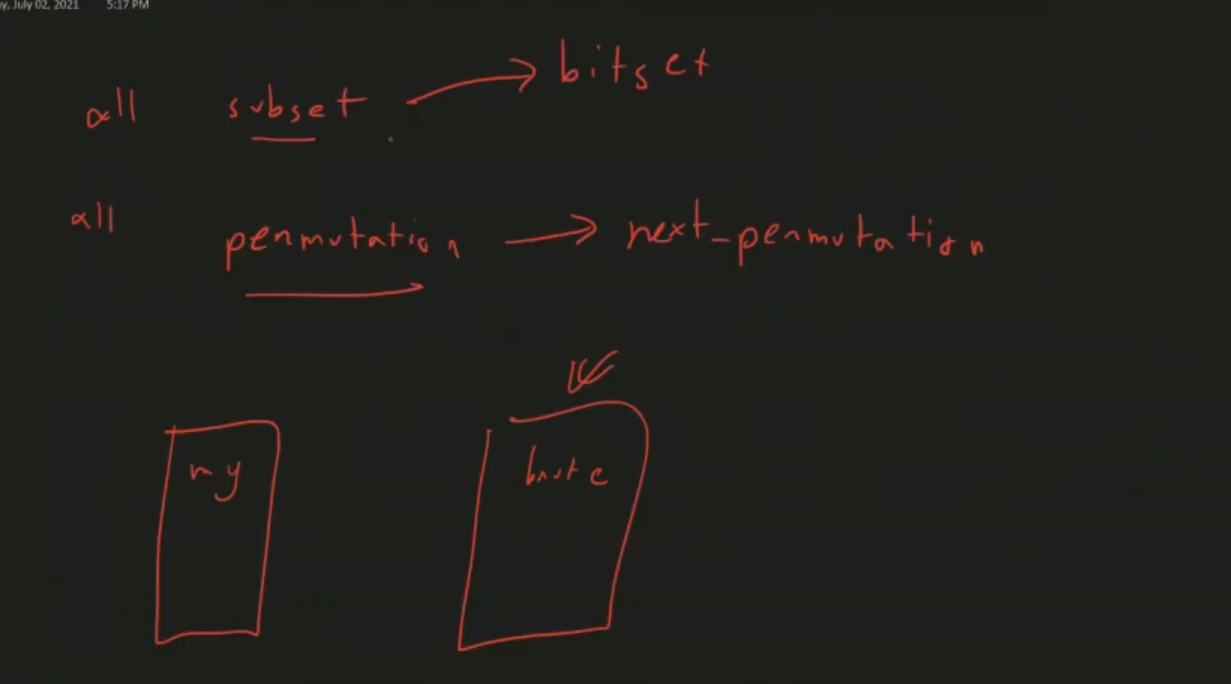 y, July 02, 2021 5:17 PM
all subset → bitset
all permutation → next_permutation
my
brute